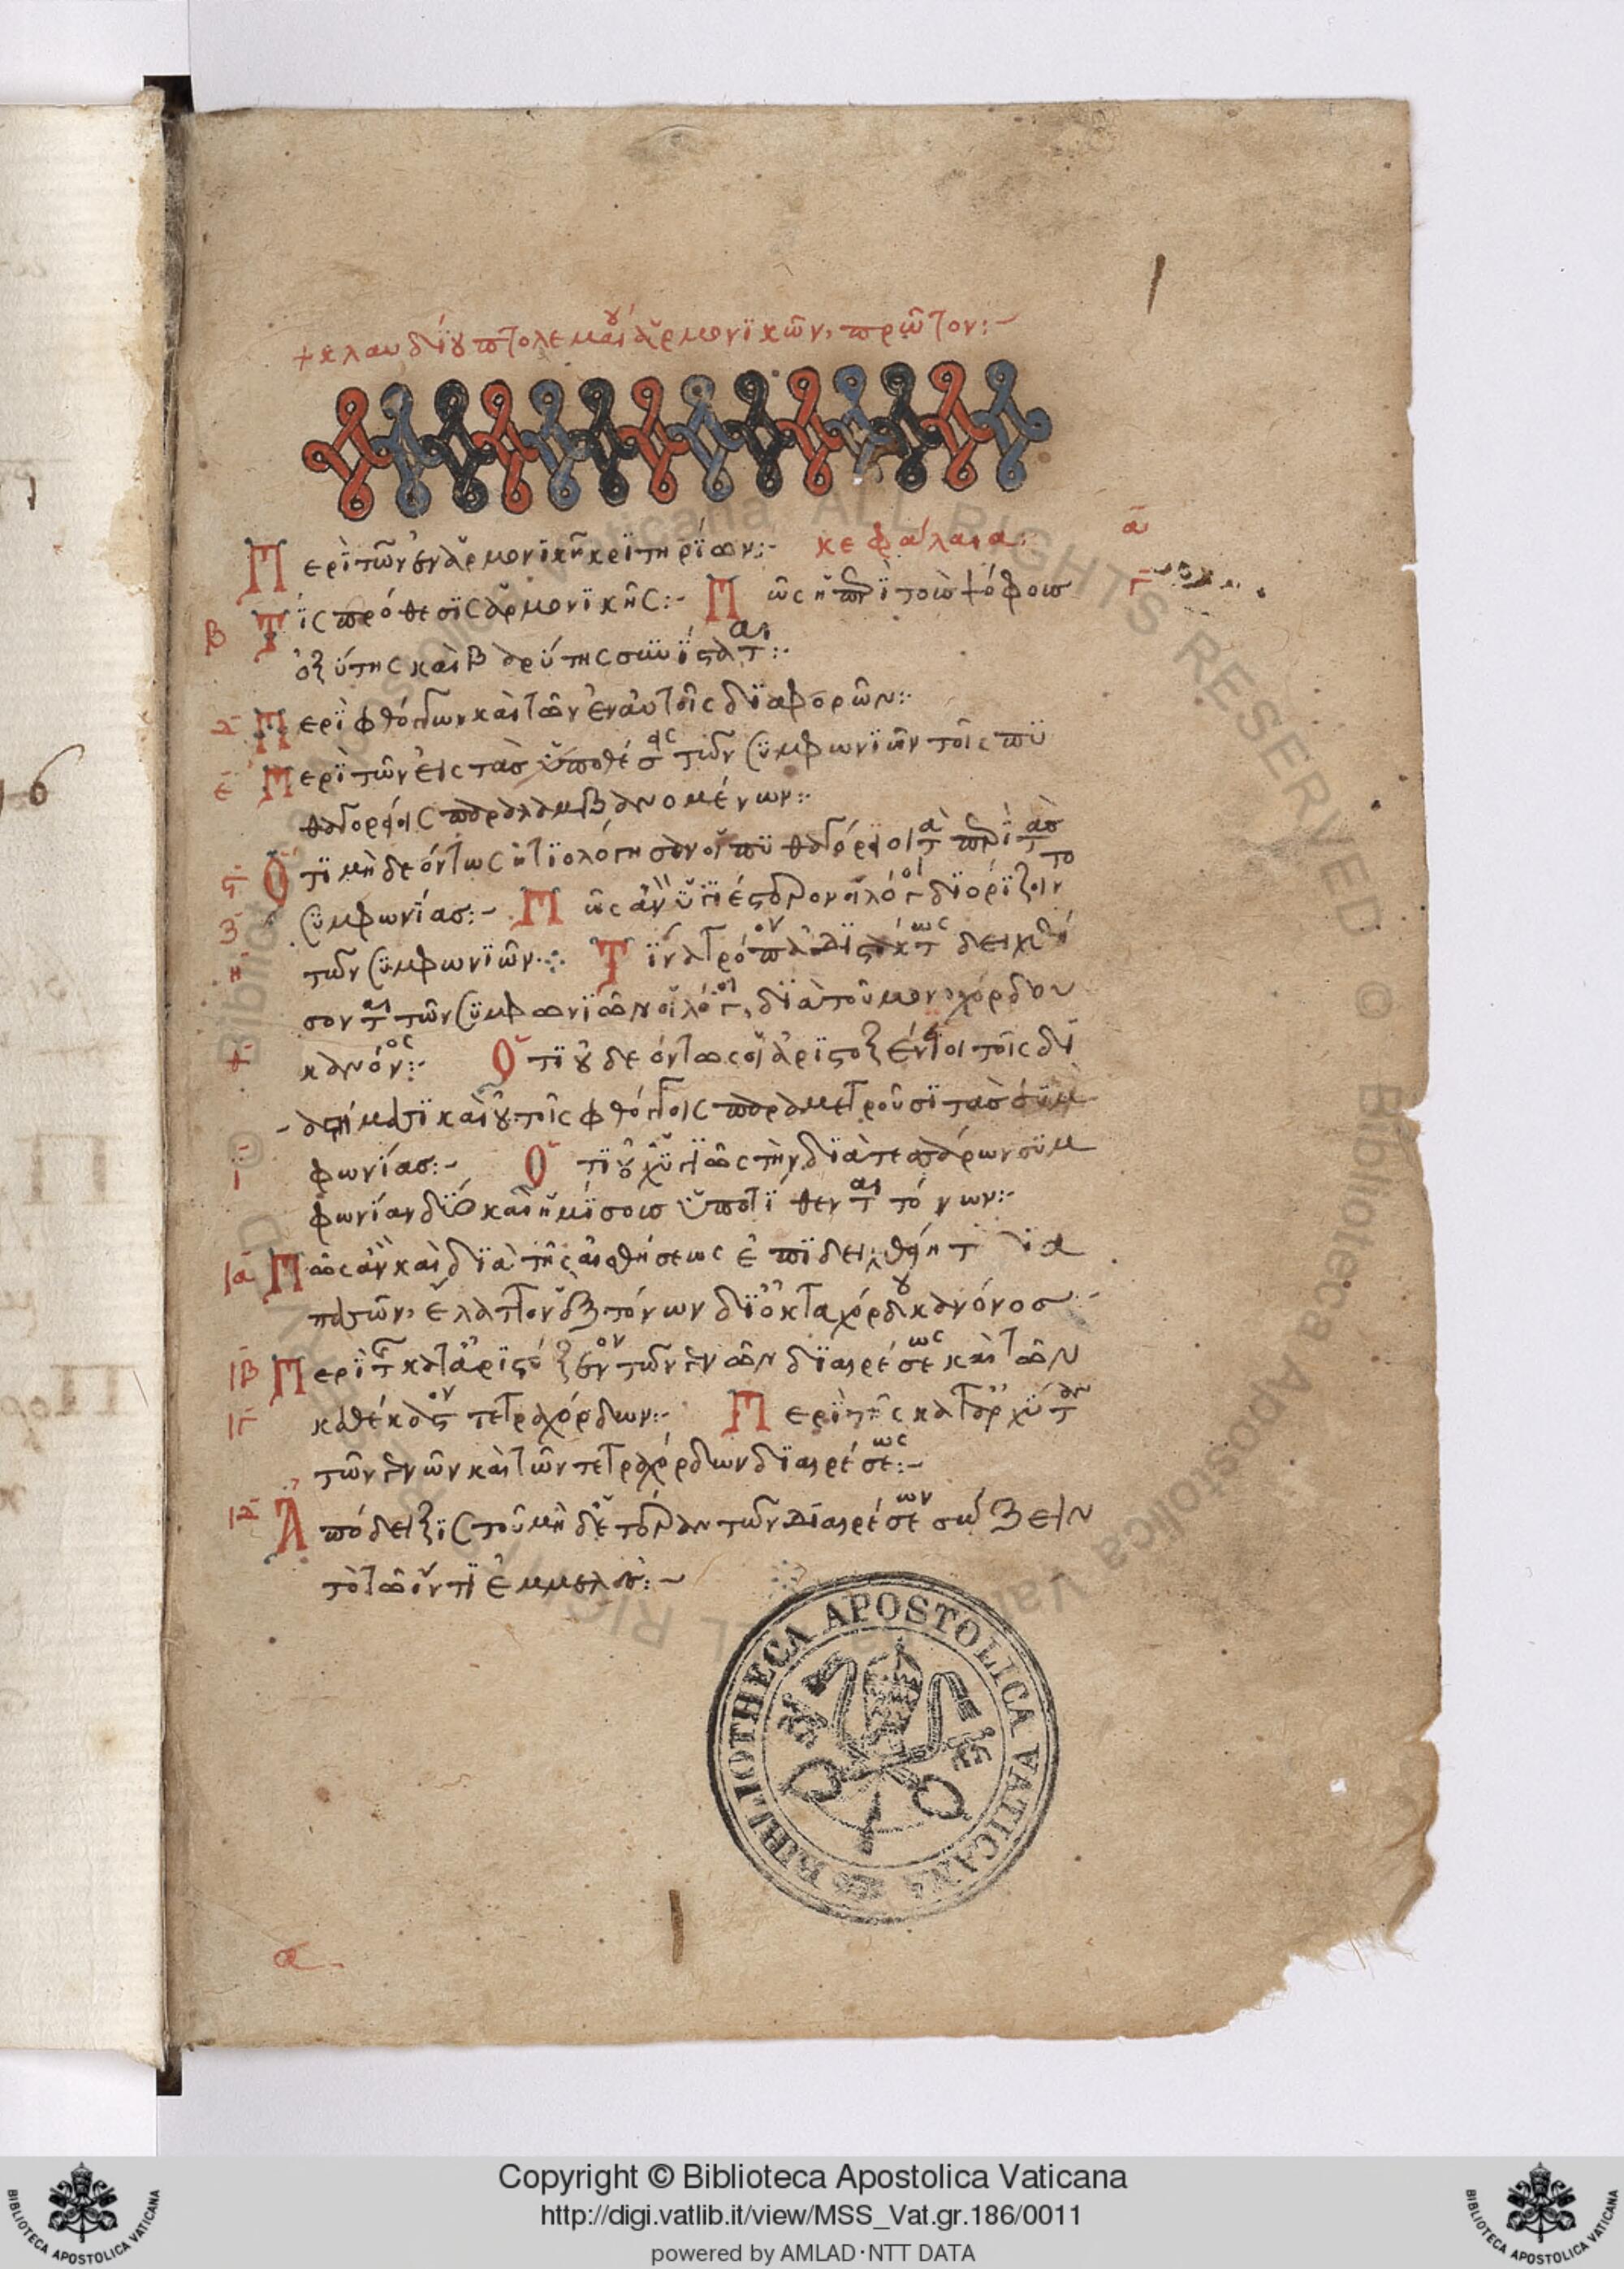 + κλαυδίου πτολεμαίου ἁρμονικῶν, πρῶτον:~
Περὶ τῶν ἐν ἁρμονικῇ κριτηρίων:- κεφάλαια: α
β Τίς πρόθεσις ἁρμονικῆς:- Πῶς ἡ περὶ τοὺς ψόφους γ
ὀξύτης καὶ βαρύτης συνίσταται:-
δ Περὶ φθόγγων καὶ τῶν ἐν αὐτοῖς διαφορῶν:-
ε Περὶ τῶν εἰς τὰς ὑποθέσεις τῶν συμφωνιῶν τοῖς πυ
θαγορείοις παραλαμβανομένων:-
ϛ Ὅτι μὴ δεόντως ᾐτιολόγησαν οἱ πυθαγόρειοι τὰ περὶ τὰς
ζ συμφωνίας:- Πῶς ἂν ὑγιέστερον οἱ λόγοι διορίζοιντο
η τῶν συμφωνιῶν: Τίνα τρόπον ἀδιστάκτως δειχθή
σονται τῶν συμφωνιῶν οἱ λόγοι, διὰ τοῦ μονοχόρδου
θ κανόνος:- Ὅτι οὐ δεόντως οἱ ἀριστοξένειοι τοῖς δι
αστήμασι καὶ οὐ τοῖς φθόγγοις παραμετροῦσι τὰς συμ
ι φωνίας:- Ὅτι οὐχ ὑγιῶς τὴν διὰ τεσσάρων συμ
φωνίαν δύο καὶ ἡμίσους ὑποτίθενται τόνων:-
ια Πῶς ἂν καὶ διὰ τῆς αἰσθήσεως ἐπιδειχθείη τ δια
πασῶν, ἔλαττον οὖσα ϛ τόνων δι' ὀκταχόρδου κανόνος
ιβ Περὶ τῆς κατ' ἀριστόξενον τῶν γενῶν διαιρέσεως καὶ τῶν
ιγ καθ' ἕκαστον τετραχόρδων:- Περὶ τῆς κατ' ἀρχύταν
τῶν γενῶν καὶ τῶν τετραχόρδων διαιρέσεως:-
ιδ Ἀπόδειξις τοῦ μηδετέραν τῶν διαιρέσεων σώζειν
τὸ τῷ ὄντι ἐμμελές:~
α
1
BIBLIOTHECA APOSTOLICA VATICANA
Copyright © Biblioteca Apostolica Vaticana
http://digi.vatlib.it/view/MSS_Vat.gr.186/0011
powered by AMLAD·NTT DATA
BIBLIOTECA APOSTOLICA VATICANA
BIBLIOTECA APOSTOLICA VATICANA